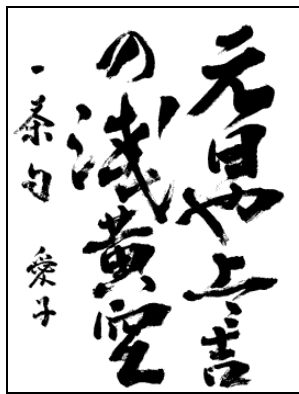 元日や上々吉
の浅黄空
一茶句 愛子